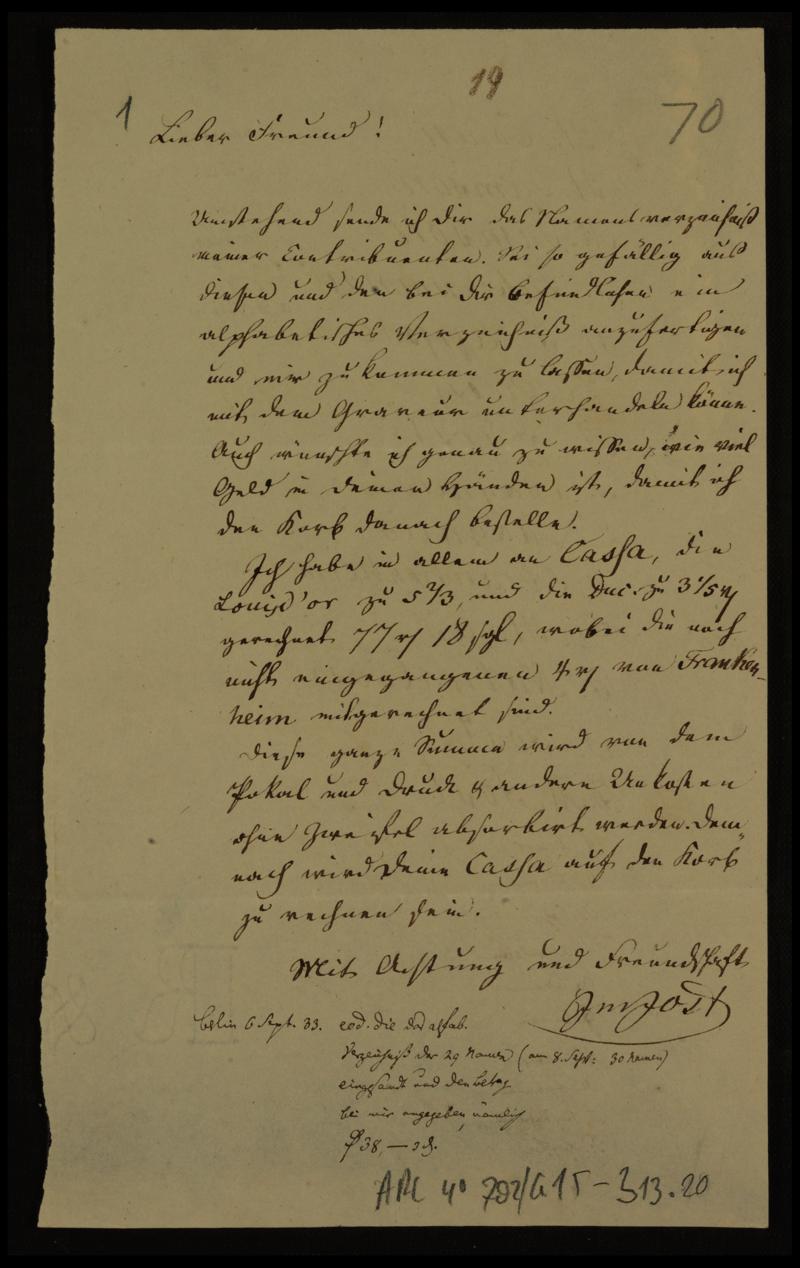 19
1
70
Lieber Freund!
Umstehend sende ich Dir das Namensverzeichniß
meiner Contribuenten. Sei so gefällig aus
diesen und den bei Dir befindlichen ein
alphabetisches Verzeichniß anzufertigen
und mir zukommen zu lassen, damit ich
mit dem Graveur unterhandeln könne.
Auch wünschte ich genau zu wissen, wie viel
Geld in Deinen Händen ist, damit ich
den Korb danach bestelle.
Ich habe in allem an Cassa, die
Louisd'or zu 5 2/3, und die Duc. zu 3 1/5 rt
gerechnet 77 rt 18 sgl, wobei die noch
nicht eingegangenen 4 rt von Franken-
heim mitgerechnet sind.
Diese ganze Summa wird von dem
Pokal und Druck & andern Unkosten
ohne Zweifel absorbirt werden. Dem-
nach wird Deine Cassa auf den Korb
zu rechnen sein.
Mit Achtung und Freundschaft
JmJost
Berlin 6 Sept. 33. eod. die das alphab.
Verzeichniß der 29 Namen (am 8. Sept: 30 Namen)
eingesandt und den Betrag
bei mir angegeben, nämlich
38, —
ARC 4° 792/G15-313.20